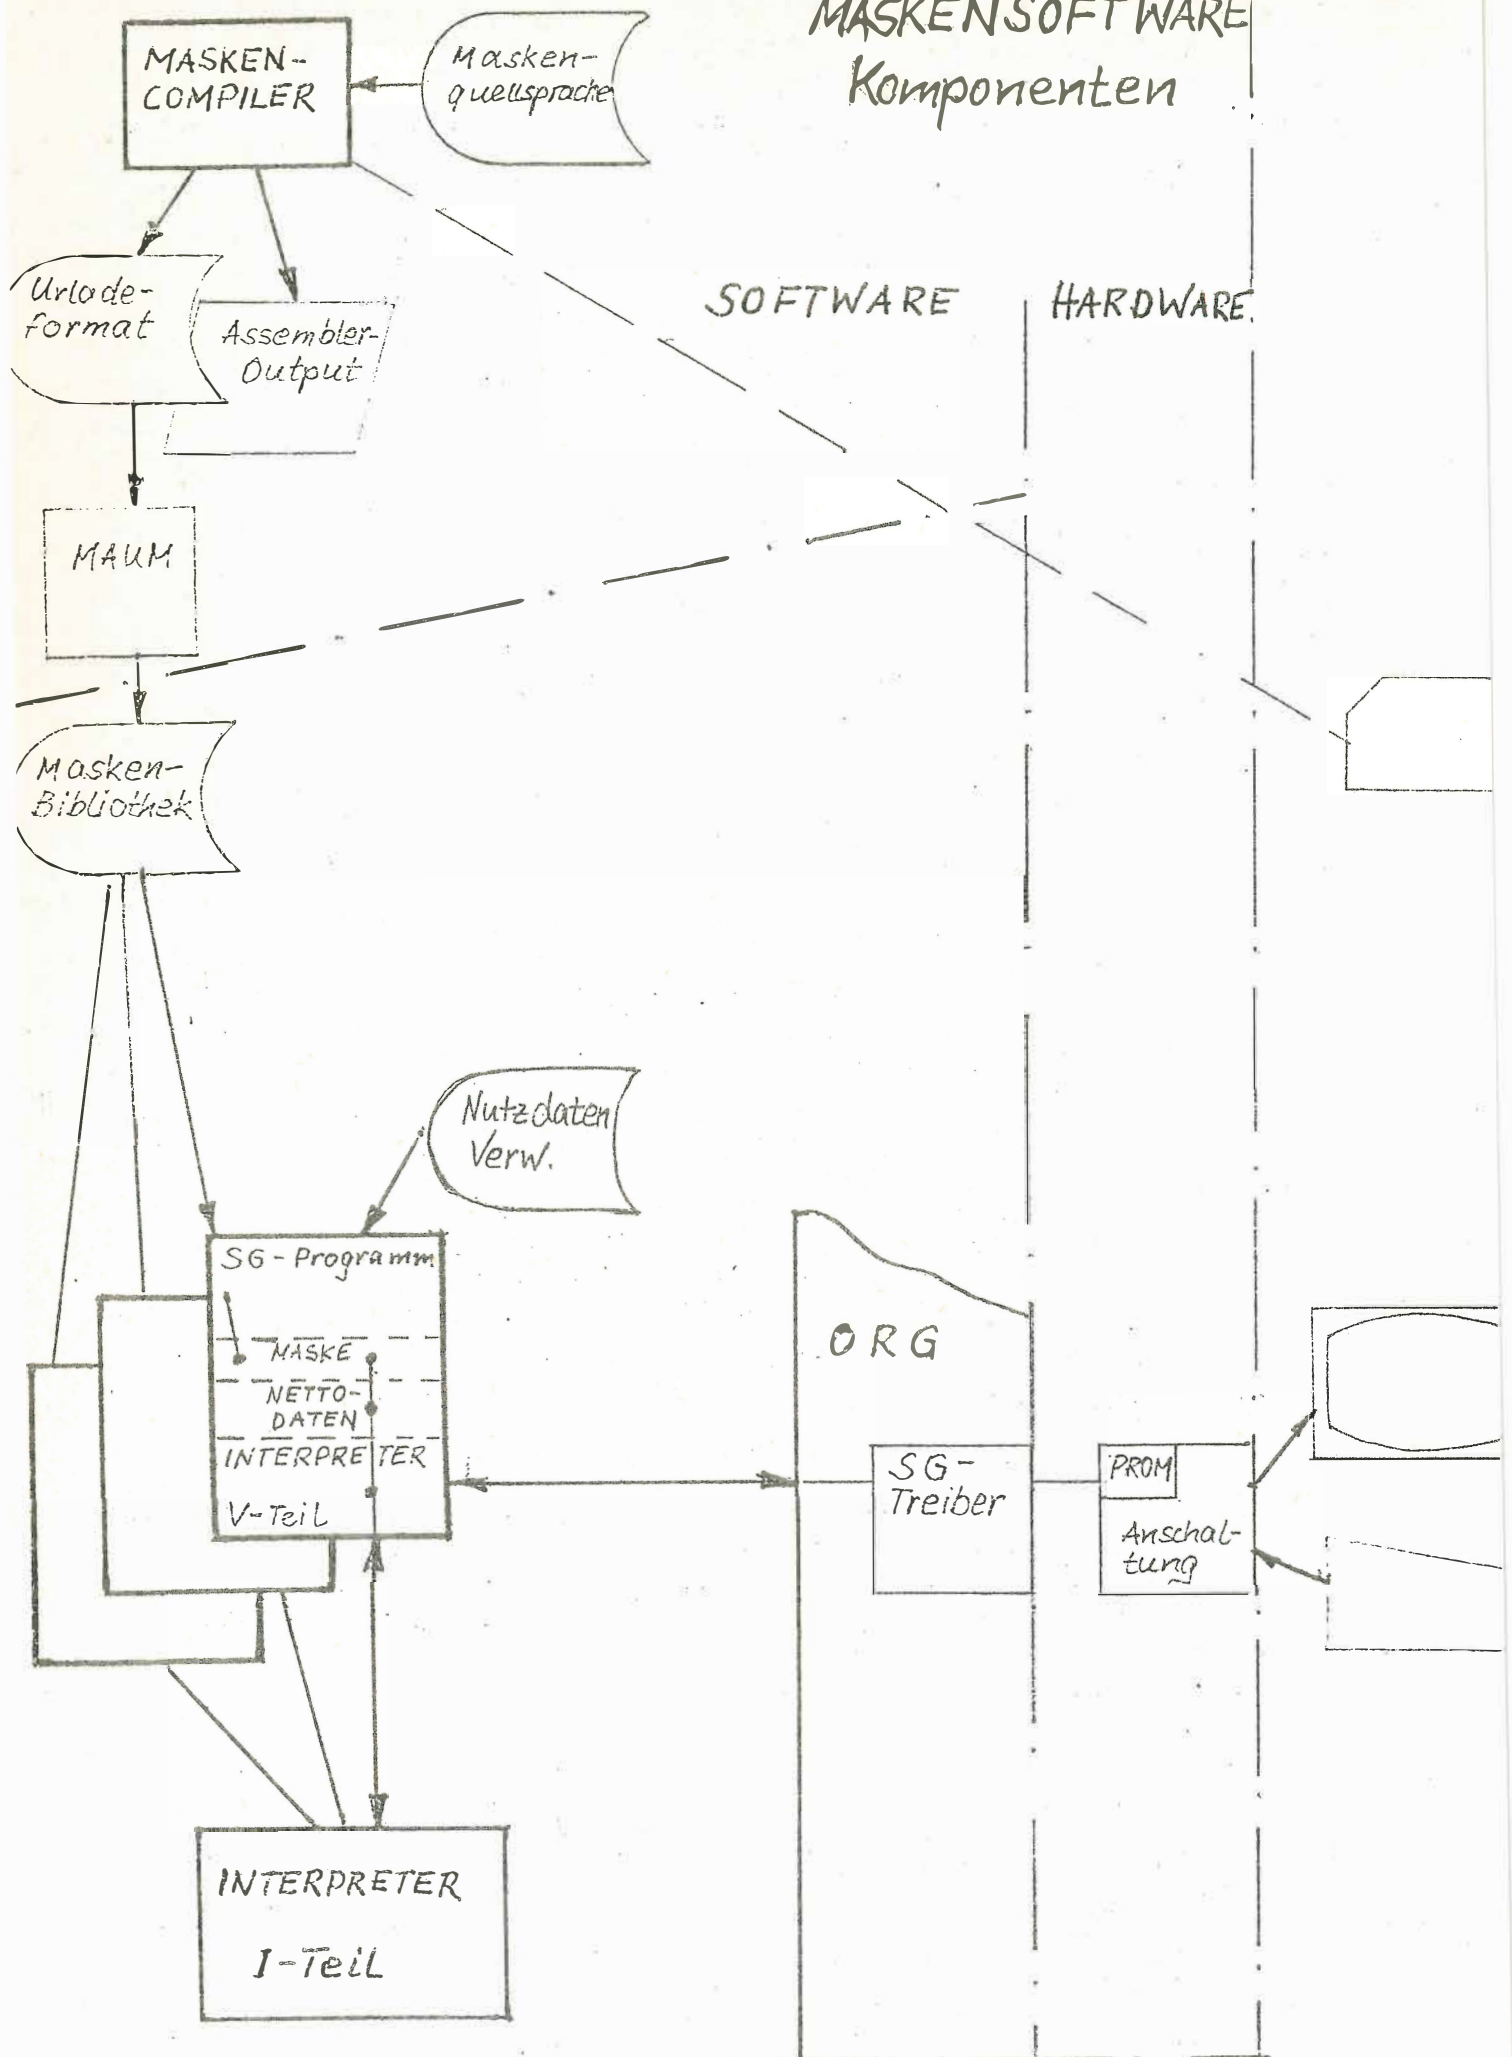 MASKENSOFTWARE
Komponenten
MASKEN-
COMPILER
Masken-
quellsprache
SOFTWARE
HARDWARE
Urlade-
format
Assembler-
Output
MAUM
Masken-
Bibliothek
Nutzdaten
Verw.
SG-Programm
MASKE
NETTO-
DATEN
INTERPRETER
V-Teil
ORG
SG-
Treiber
PROM
Anschal-
tung
INTERPRETER
I-Teil